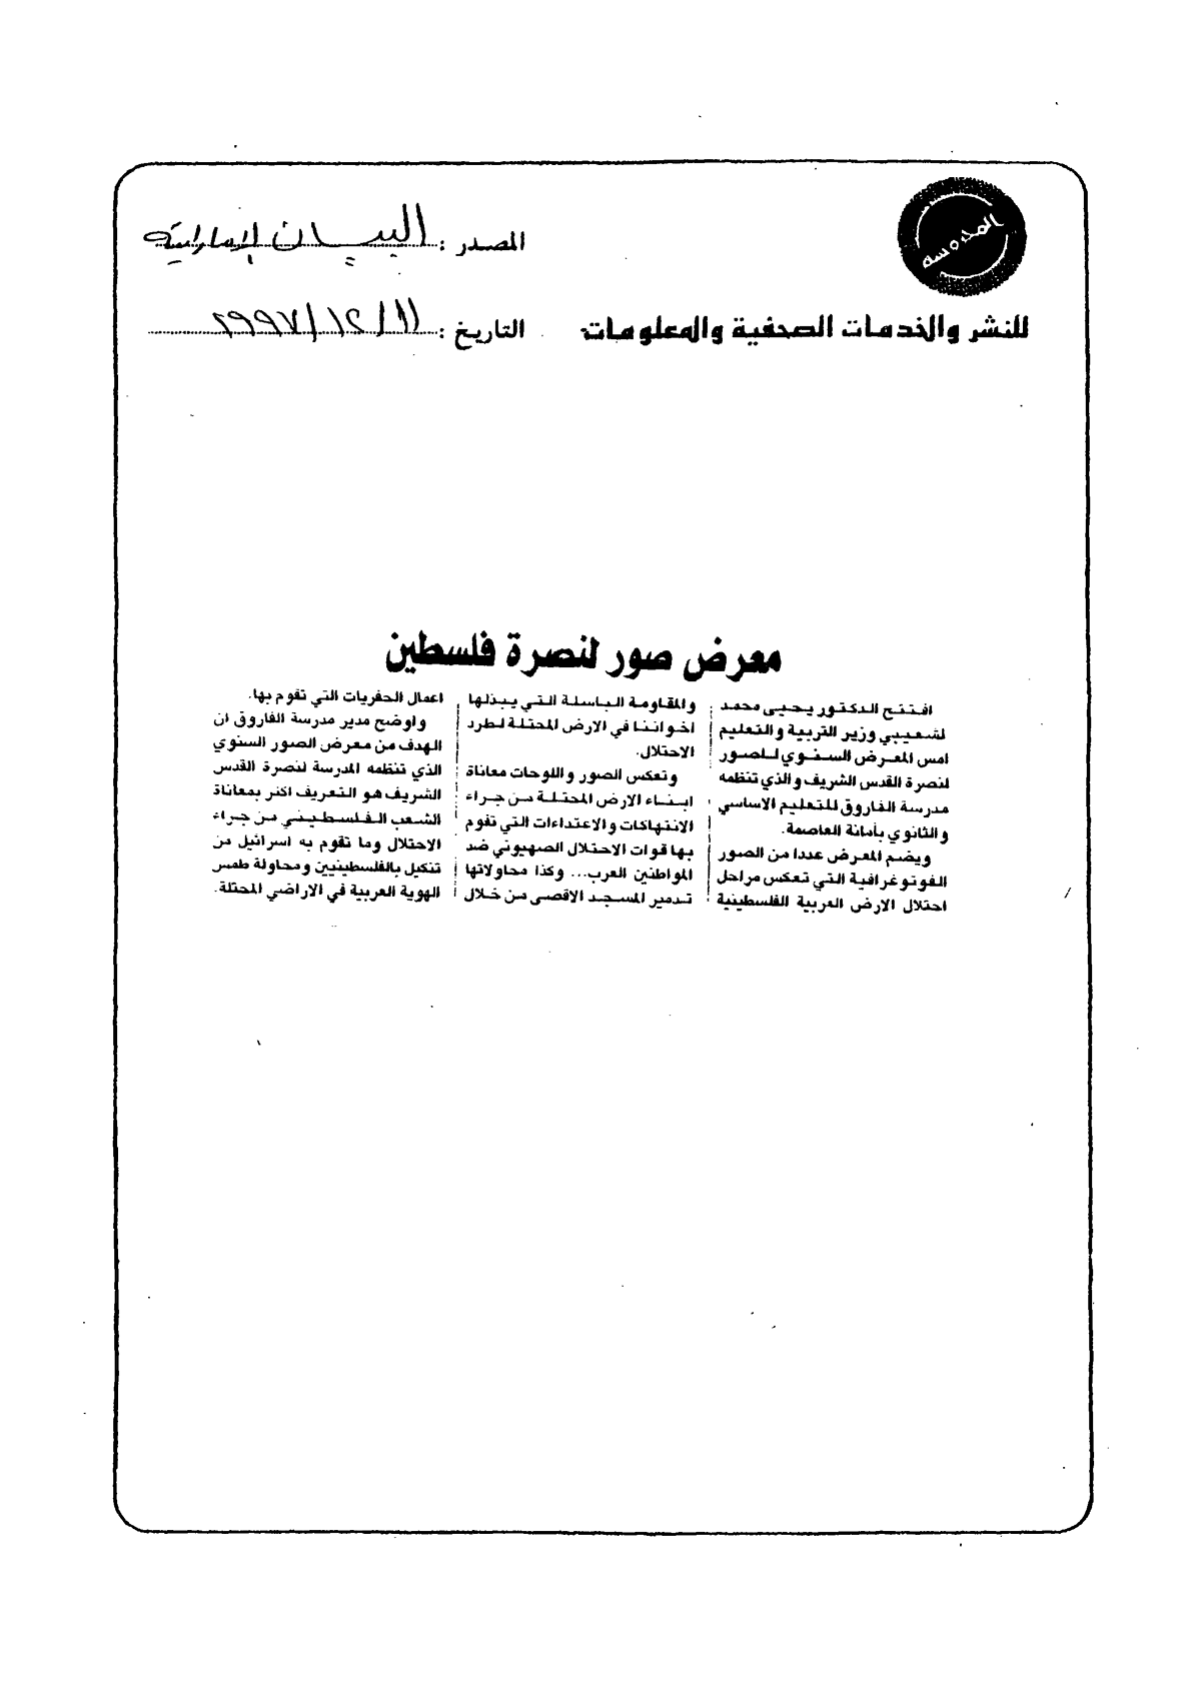 المدروسه
للنشر والخدمات الصحفية والمعلومات
المصدر : البيان الإماراتية
التاريخ : ١١/ ١٢/ ١٩٩٧
معرض صور لنصرة فلسطين
افتتح الدكتور يحيى محمد
لشعيبي وزير التربية والتعليم
امس المعرض السنوي للصور
لنصرة القدس الشريف والذي تنظمه
مدرسة الفاروق للتعليم الاساسي
والثانوي بأمانة العاصمة.
ويضم المعرض عددا من الصور
الفوتوغرافية التي تعكس مراحل
احتلال الارض العربية الفلسطينية
والمقاومة الباسلة التي يبذلها
اخواننا في الارض المحتلة لطرد
الاحتلال.
وتعكس الصور واللوحات معاناة
ابناء الارض المحتلة من جراء
الانتهاكات والاعتداءات التي تقوم
بها قوات الاحتلال الصهيوني ضد
المواطنين العرب... وكذا محاولاتها
تدمير المسجد الاقصى من خلال
اعمال الحفريات التي تقوم بها.
واوضح مدير مدرسة الفاروق ان
الهدف من معرض الصور السنوي
الذي تنظمه المدرسة لنصرة القدس
الشريف هو التعريف اكثر بمعاناة
الشعب الفلسطيني من جراء
الاحتلال وما تقوم به اسرائيل من
تنكيل بالفلسطينيين ومحاولة طمس
الهوية العربية في الاراضي المحتلة.